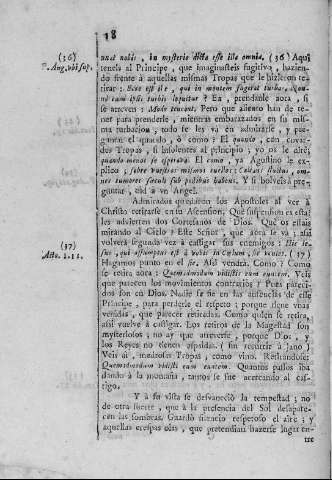 18
(36)
P. Aug. ubi sup.
unct nobis, in mysterio dicta esse illa omnia. (36) Aqui
teneis al Principe, que imaginasteis fugitivo, hazien-
do frente à aquellas mismas Tropas que le hizieron re-
tirar: Ecce est ille, qui in montem fugerat turba,
tum ipsis turbis loquitur? Ea, prendedle aora, si
se atreven: Modo teneant; Pero que aliento han de tener
para prenderle, mientras embarazados en su mis-
ma turbacion; todo se les và en admirarse, y pre-
guntar el quando, ò como? El quando, con cov-
des Tropas, y insolentes al principio; yo os le diré,
quando menos se esperava. El como, ya Agustino le ex-
plicò, sobre vuestras mismas huellas: Calcat fluctus, om-
nes tumores saeculi sub pedibus habens. Y si bolveis à pre-
guntar, oíd à un Angel.
Admirados quedaron los Apostoles al ver à
Christo retirarse en su Ascension. Què suspension es esta?
les advierten dos Cortesanos de Dios. Què os estais
mirando al Cielo? Este Señor, que aora se và; asi
volverà segunda vez à castigar sus enemigos: Hic Je-
(37)
Acto. 1.11.
sus, qui assumptus est à vobis in Cælum, sic veniet. (37)
Hagamos punto en el sic. Asi vendrà. Como? Como
se retira aora: Quemadmodum vidistis eum euntem. Veis
que parecen los movimientos contrarios? Pues pareci-
dos son en Dios. Nadie se fie en las ausencias de este
Principe, para perderle el respeto; porque tiene unas
venidas, que parecen retiradas. Como quien se retira,
asi vuelve à castigar. Los retiros de la Magestad son
mysteriosos; no ay que atreverse, porque Dios, y
los Reyes no tienen espaldas. (sin recurrir à Jano)
Veis ai, medrosas Tropas, como vino. Retirandose:
Quemadmodum vidistis eum euntem. Quantos passos iba
dando à la montaña, tantos se fue acercando al cas-
tigo.
Y à su vista se desvaneciò la tempestad; no
de otra suerte, que à la presencia del Sol desapare-
cen las sombras. Guardò silencio respetoso el aire; y
aquellas crespas olas, que pretendian hazerse lugar en-
tre